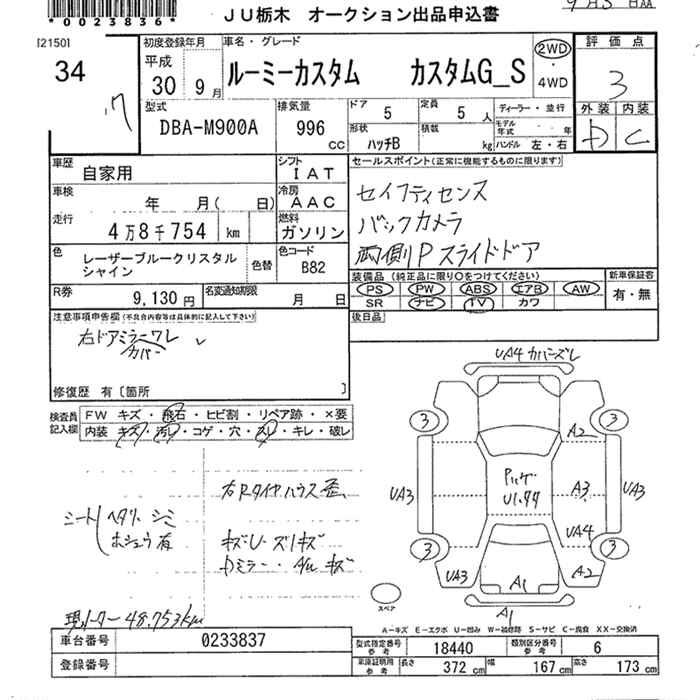 *0023836*
JU栃木 オークション出品申込書
[2150]
34
初度登録年月
平成
30 9月
車名・グレード
ルーミーカスタム カスタムG_S
2WD
・
4WD
評価点
3
外装 内装
D C
型式
DBA-M900A
排気量
996
CC
ドア 5
定員 5 人
ディーラー・並行
形状 ハッチB
積載 kg
モデル年式 年
ハンドル 左・右
車歴 自家用
シフト IAT
セールスポイント(正常に機能するものに限ります)
車検 年 月( 日)
冷房 AAC
セイフティセンス
バックカメラ
両側Pスライドドア
走行 4万8千754 km
燃料 ガソリン
色 レーザーブルークリスタル
シャイン
色替
色コード B82
装備品(純正品に限り○をつけてください)
新車保証書
PS PW ABS エアB AW
有・無
SR ナビ TV カワ
R券 9,130円
名変通知期限 月 日
後日品
注意事項申告欄(不具合内容等は具体的に記入して下さい)
右ドアミラーワレ
カバー
修復歴 有〔箇所 〕
検査員
記入欄
FW キズ・飛石・ヒビ割・リペア跡・×要
内装 キズ・汚れ・コゲ・穴・スレ・キレ・破レ
右Rタイヤハウス歪
シート ヘタリ、シミ
ホシュウ有
現メーター 48.753km
UA4 カバーズレ
3
3
A2
UA3
A3
UA3
UA4
3
3
UA3
A1
A2
スペア
A1
A-キズ E-エクボ U-凹み W-補修跡 S-サビ C-腐食 XX-交換済
車台番号 0233837
登録番号
型式指定番号 参考 18440
類別区分番号 参考 6
車庫証明用 参考
長さ 372 cm
幅 167 cm
高さ 173 cm